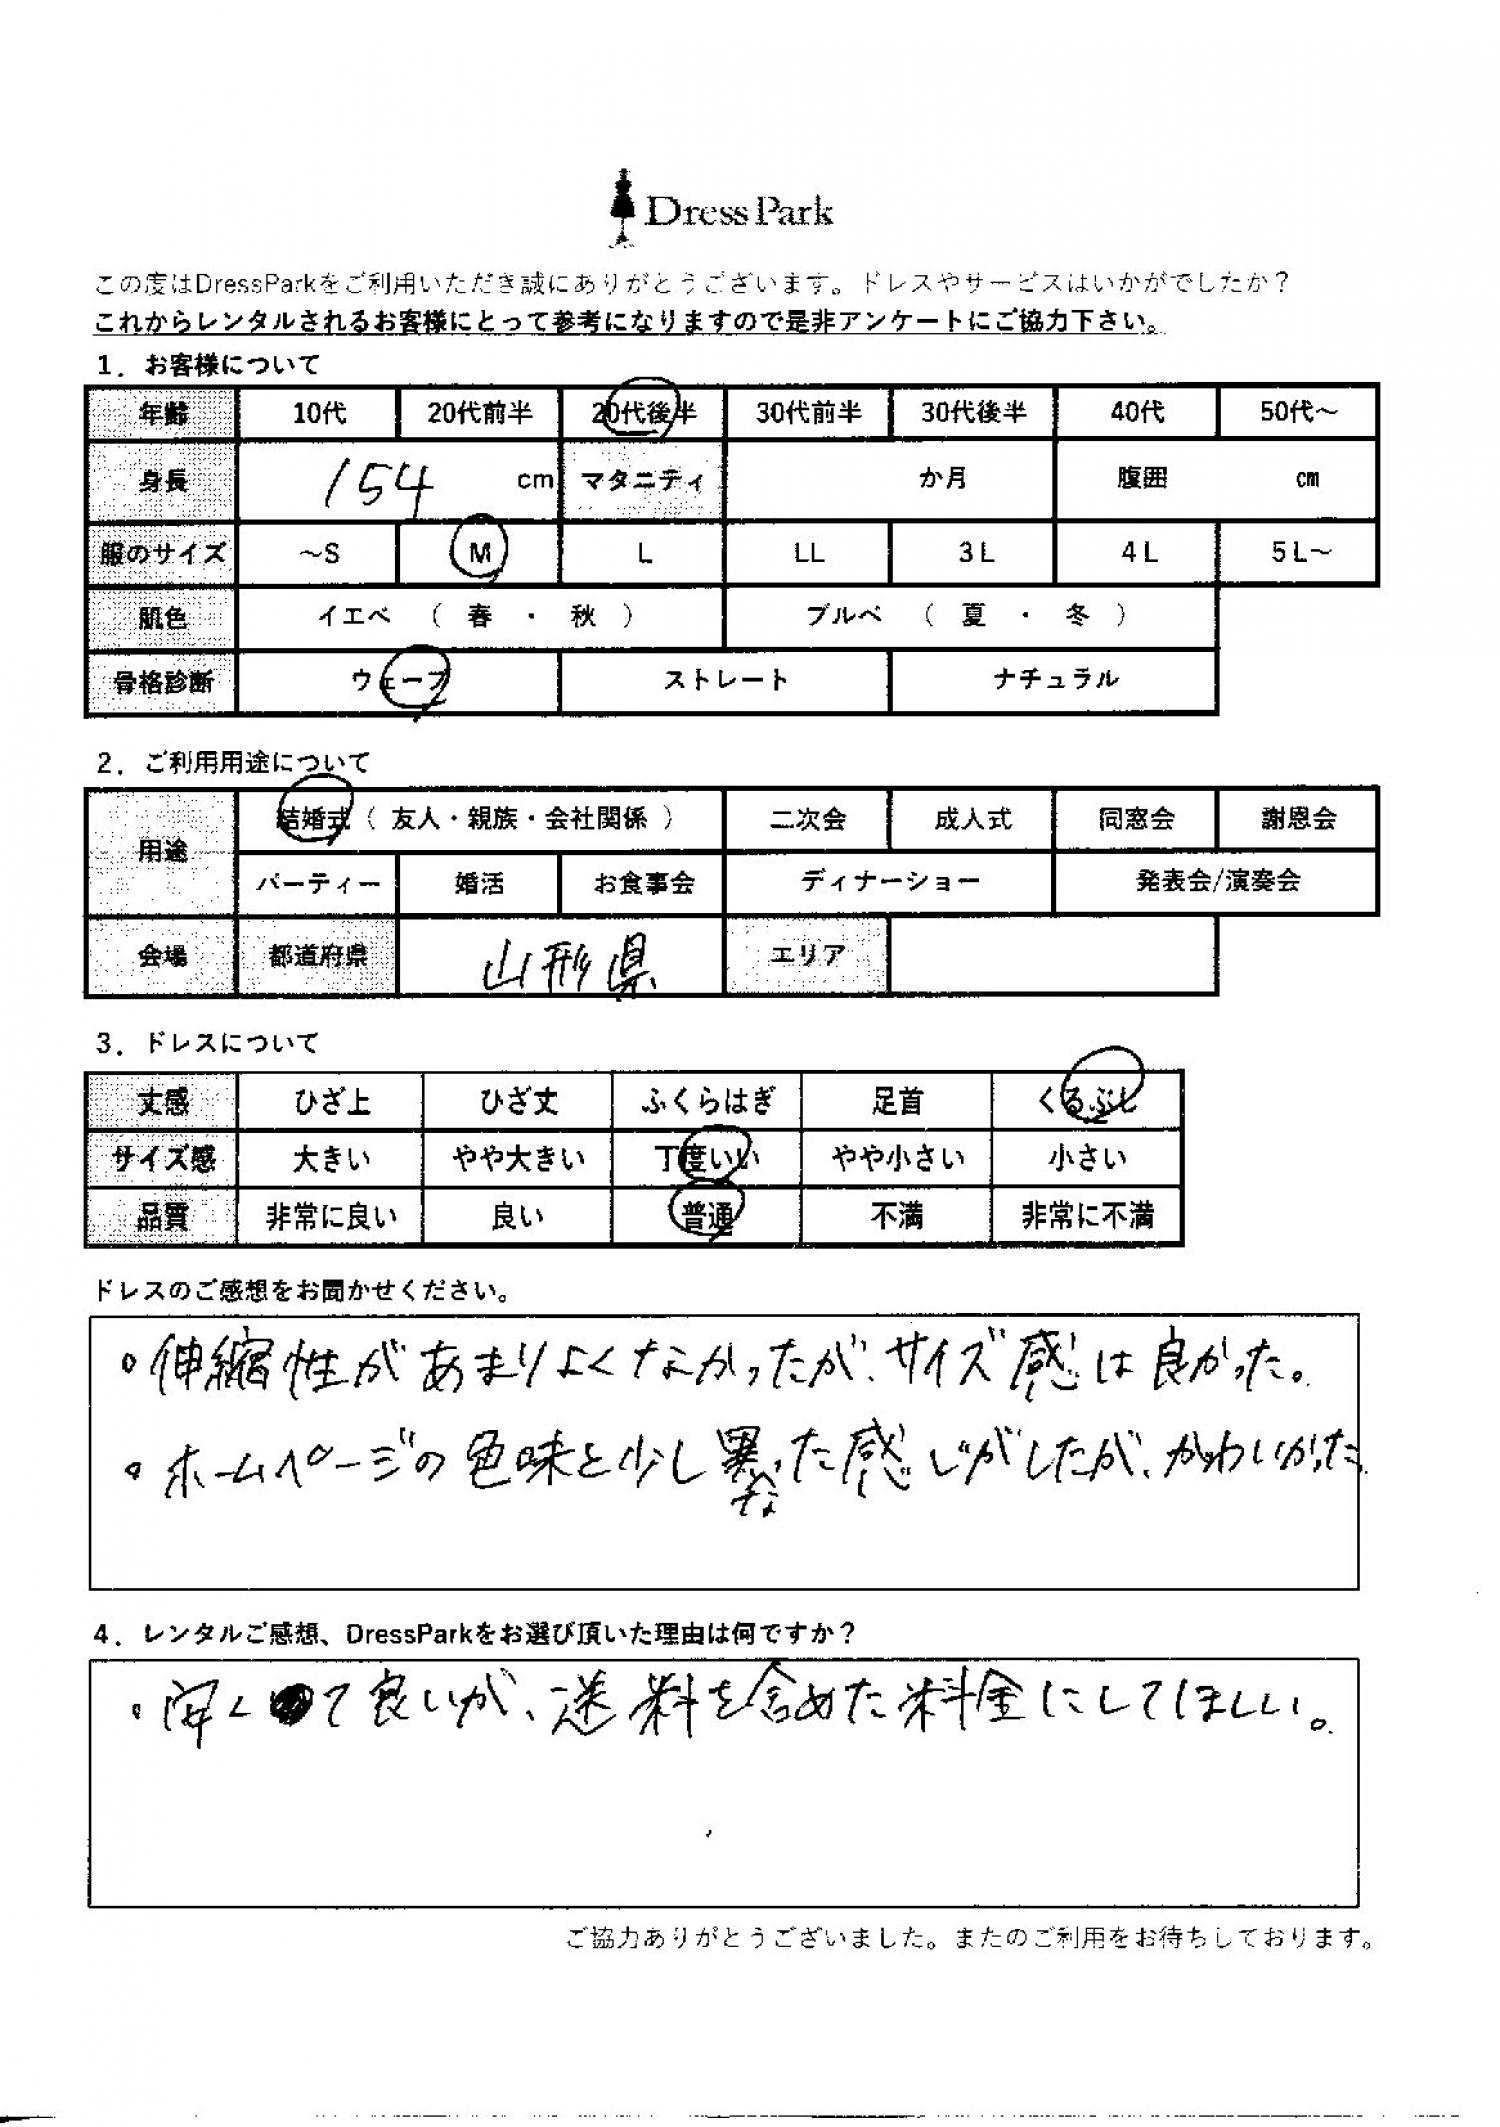 Dress Park
この度はDressParkをご利用いただき誠にありがとうございます。ドレスやサービスはいかがでしたか？
これからレンタルされるお客様にとって参考になりますので是非アンケートにご協力下さい。
1．お客様について
年齢 10代 20代前半 20代後半 30代前半 30代後半 40代 50代～
身長 154 cm マタニティ か月 腹囲 cm
服のサイズ ～S M L LL 3L 4L 5L～
肌色 イエベ （ 春 ・ 秋 ） ブルベ （ 夏 ・ 冬 ）
骨格診断 ウェーブ ストレート ナチュラル
2．ご利用用途について
用途 結婚式（ 友人・親族・会社関係 ） 二次会 成人式 同窓会 謝恩会
パーティー 婚活 お食事会 ディナーショー 発表会/演奏会
会場 都道府県 山形県 エリア
3．ドレスについて
丈感 ひざ上 ひざ丈 ふくらはぎ 足首 くるぶし
サイズ感 大きい やや大きい 丁度いい やや小さい 小さい
品質 非常に良い 良い 普通 不満 非常に不満
ドレスのご感想をお聞かせください。
。伸縮性があまりよくなかったが、サイズ感は良かった。
。ホームページの色味と少し異なった感じがしたが、かわいかった。
4．レンタルご感想、DressParkをお選び頂いた理由は何ですか？
・安くて良いが、送料を含めた料金にしてほしい。
ご協力ありがとうございました。またのご利用をお待ちしております。